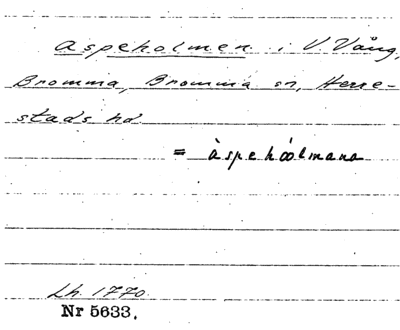 Aspeholmen i V Vång,
Bromma, Bromma sn, Herre-
stads hd
= àspehòolmana
Lh. 1770
Nr 5633.